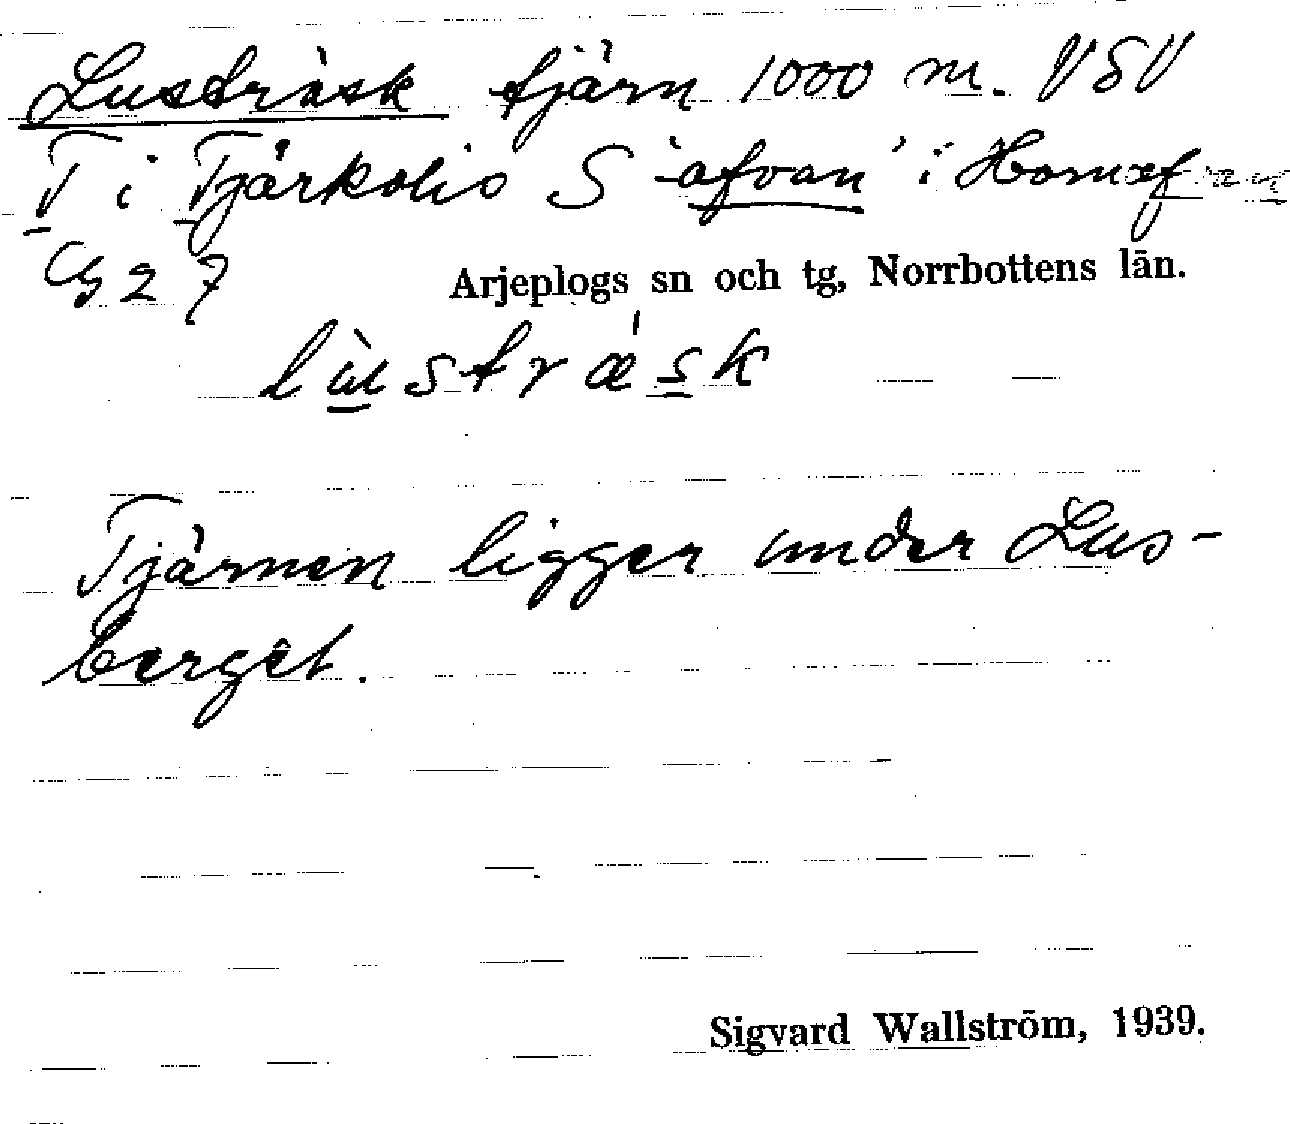 Lusträsk tjärn 1000 m. VSV
T i Tjärkolis S 'afvan' i Hornafvan
G 2 7
Arjeplogs sn och tg, Norrbottens län.
lùstrǽsk
Tjärnen ligger under Lus-
berget.
Sigvard Wallström, 1939.